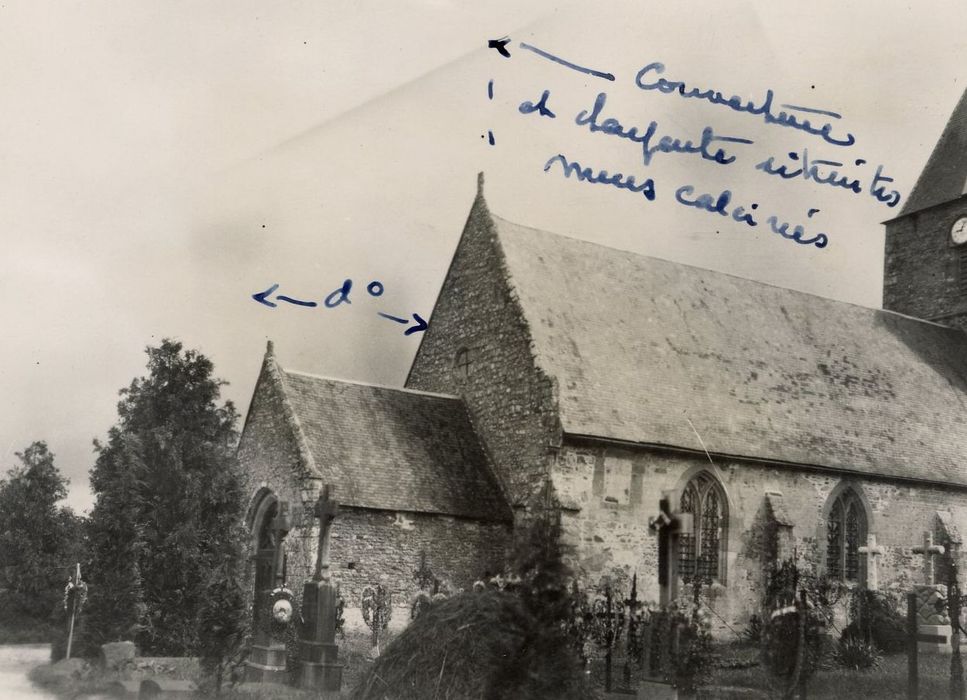 Couverture
et charpente détruites
murs calcinés
d°